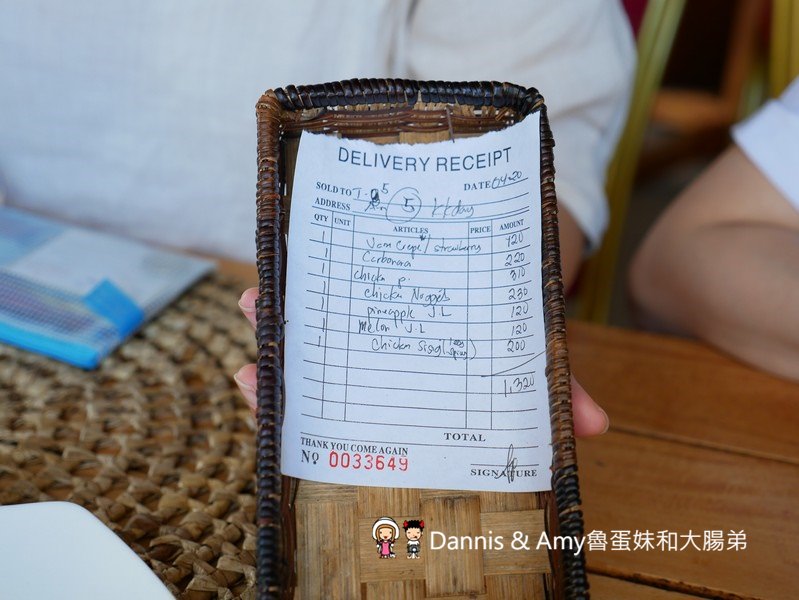 DELIVERY RECEIPT
SOLD TO T-5 DATE 04-20
ADDRESS 5
QTY UNIT ARTICLES PRICE AMOUNT
1 Jam Crepe / strawberry 120
1 Carbonara 220
1 Chicken p. 310
1 Chicken Nuggets 230
1 pineapple J.L 120
1 Melon J.L 120
1 Chicken Sisig 200
1,320
TOTAL
THANK YOU COME AGAIN
Nº 0033649
SIGNATURE
Dannis & Amy魯蛋妹和大腸弟